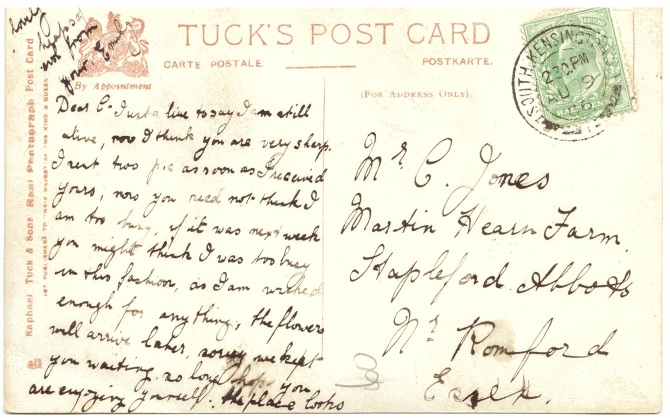 TUCK'S POST CARD
CARTE POSTALE
POSTKARTE.
By Appointment
(FOR ADDRESS ONLY).
Raphael Tuck & Sons Real Photograph Post Card
SOUTH KENSINGTON
2.30 PM
AU 9
Dear C- Just a line to say I am still
alive, now I think you are very sharp.
I sent two p.c as soon as I received
yours, now you need not think I
am too busy, if it was next week
you might think I was too busy
in this fashion, as I am
enough for anything, the flowers
will arrive later, we kept
you waiting so long hope you
are enjoying yourself. the place looks
lonely
not from
your Emil
Mr C. Jones
Martin Hearn Farm.
Stapleford Abbotts
Nr Romford
Essex.
60